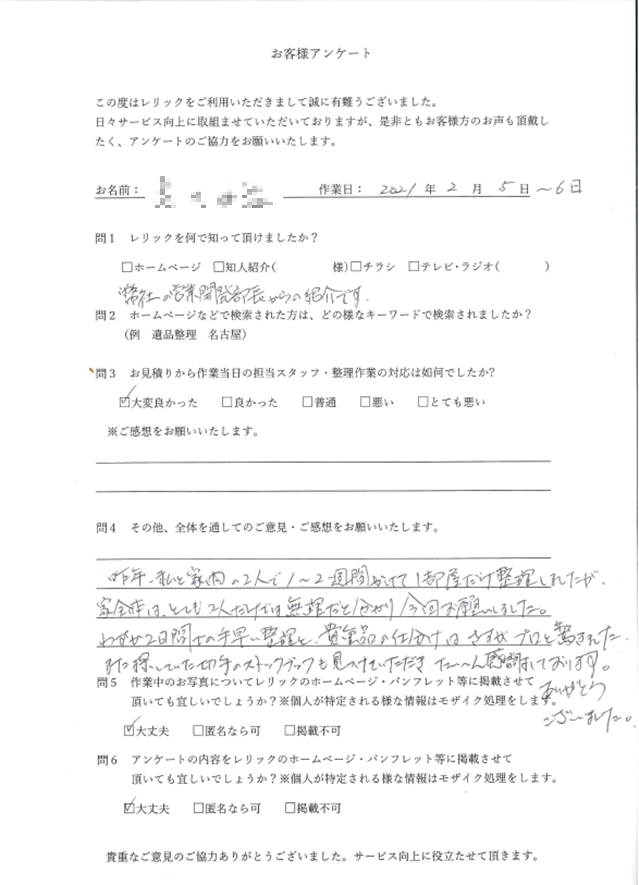 お客様アンケート
この度はレリックをご利用いただきまして誠に有難うございました。
日々サービス向上に取組ませていただいておりますが、是非ともお客様方のお声も頂戴し
たく、アンケートのご協力をお願いいたします。
お名前： 作業日： 2021 年 2 月 5 日 ～6日
問1 レリックを何で知って頂けましたか？
□ホームページ □知人紹介( 様)□チラシ □テレビ・ラジオ( )
弊社の営業開発部長からの紹介です.
問2 ホームページなどで検索された方は、どの様なキーワードで検索されましたか？
(例 遺品整理 名古屋)
問3 お見積りから作業当日の担当スタッフ・整理作業の対応は如何でしたか？
☑大変良かった □良かった □普通 □悪い □とても悪い
※ご感想をお願いいたします。
問4 その他、全体を通してのご意見・ご感想をお願いいたします。
昨年、私と家内の2人で1～2週間かけて1部屋だけ整理しましたが、
家全体は、とても2人だけでは無理だと分かり今回お願いしました。
わずか2日間での手早い整理と、貴重品の仕分けはさすがプロと驚きました.
また探していた切手のストックブックも見つけていただき、たいへん感謝しております。
ありがとう
ございました。
問5 作業中のお写真についてレリックのホームページ・パンフレット等に掲載させて
頂いても宜しいでしょうか？※個人が特定される様な情報はモザイク処理をします。
☑大丈夫 □匿名なら可 □掲載不可
問6 アンケートの内容をレリックのホームページ・パンフレット等に掲載させて
頂いても宜しいでしょうか？※個人が特定される様な情報はモザイク処理をします。
☑大丈夫 □匿名なら可 □掲載不可
貴重なご意見のご協力ありがとうございました。サービス向上に役立たせて頂きます。